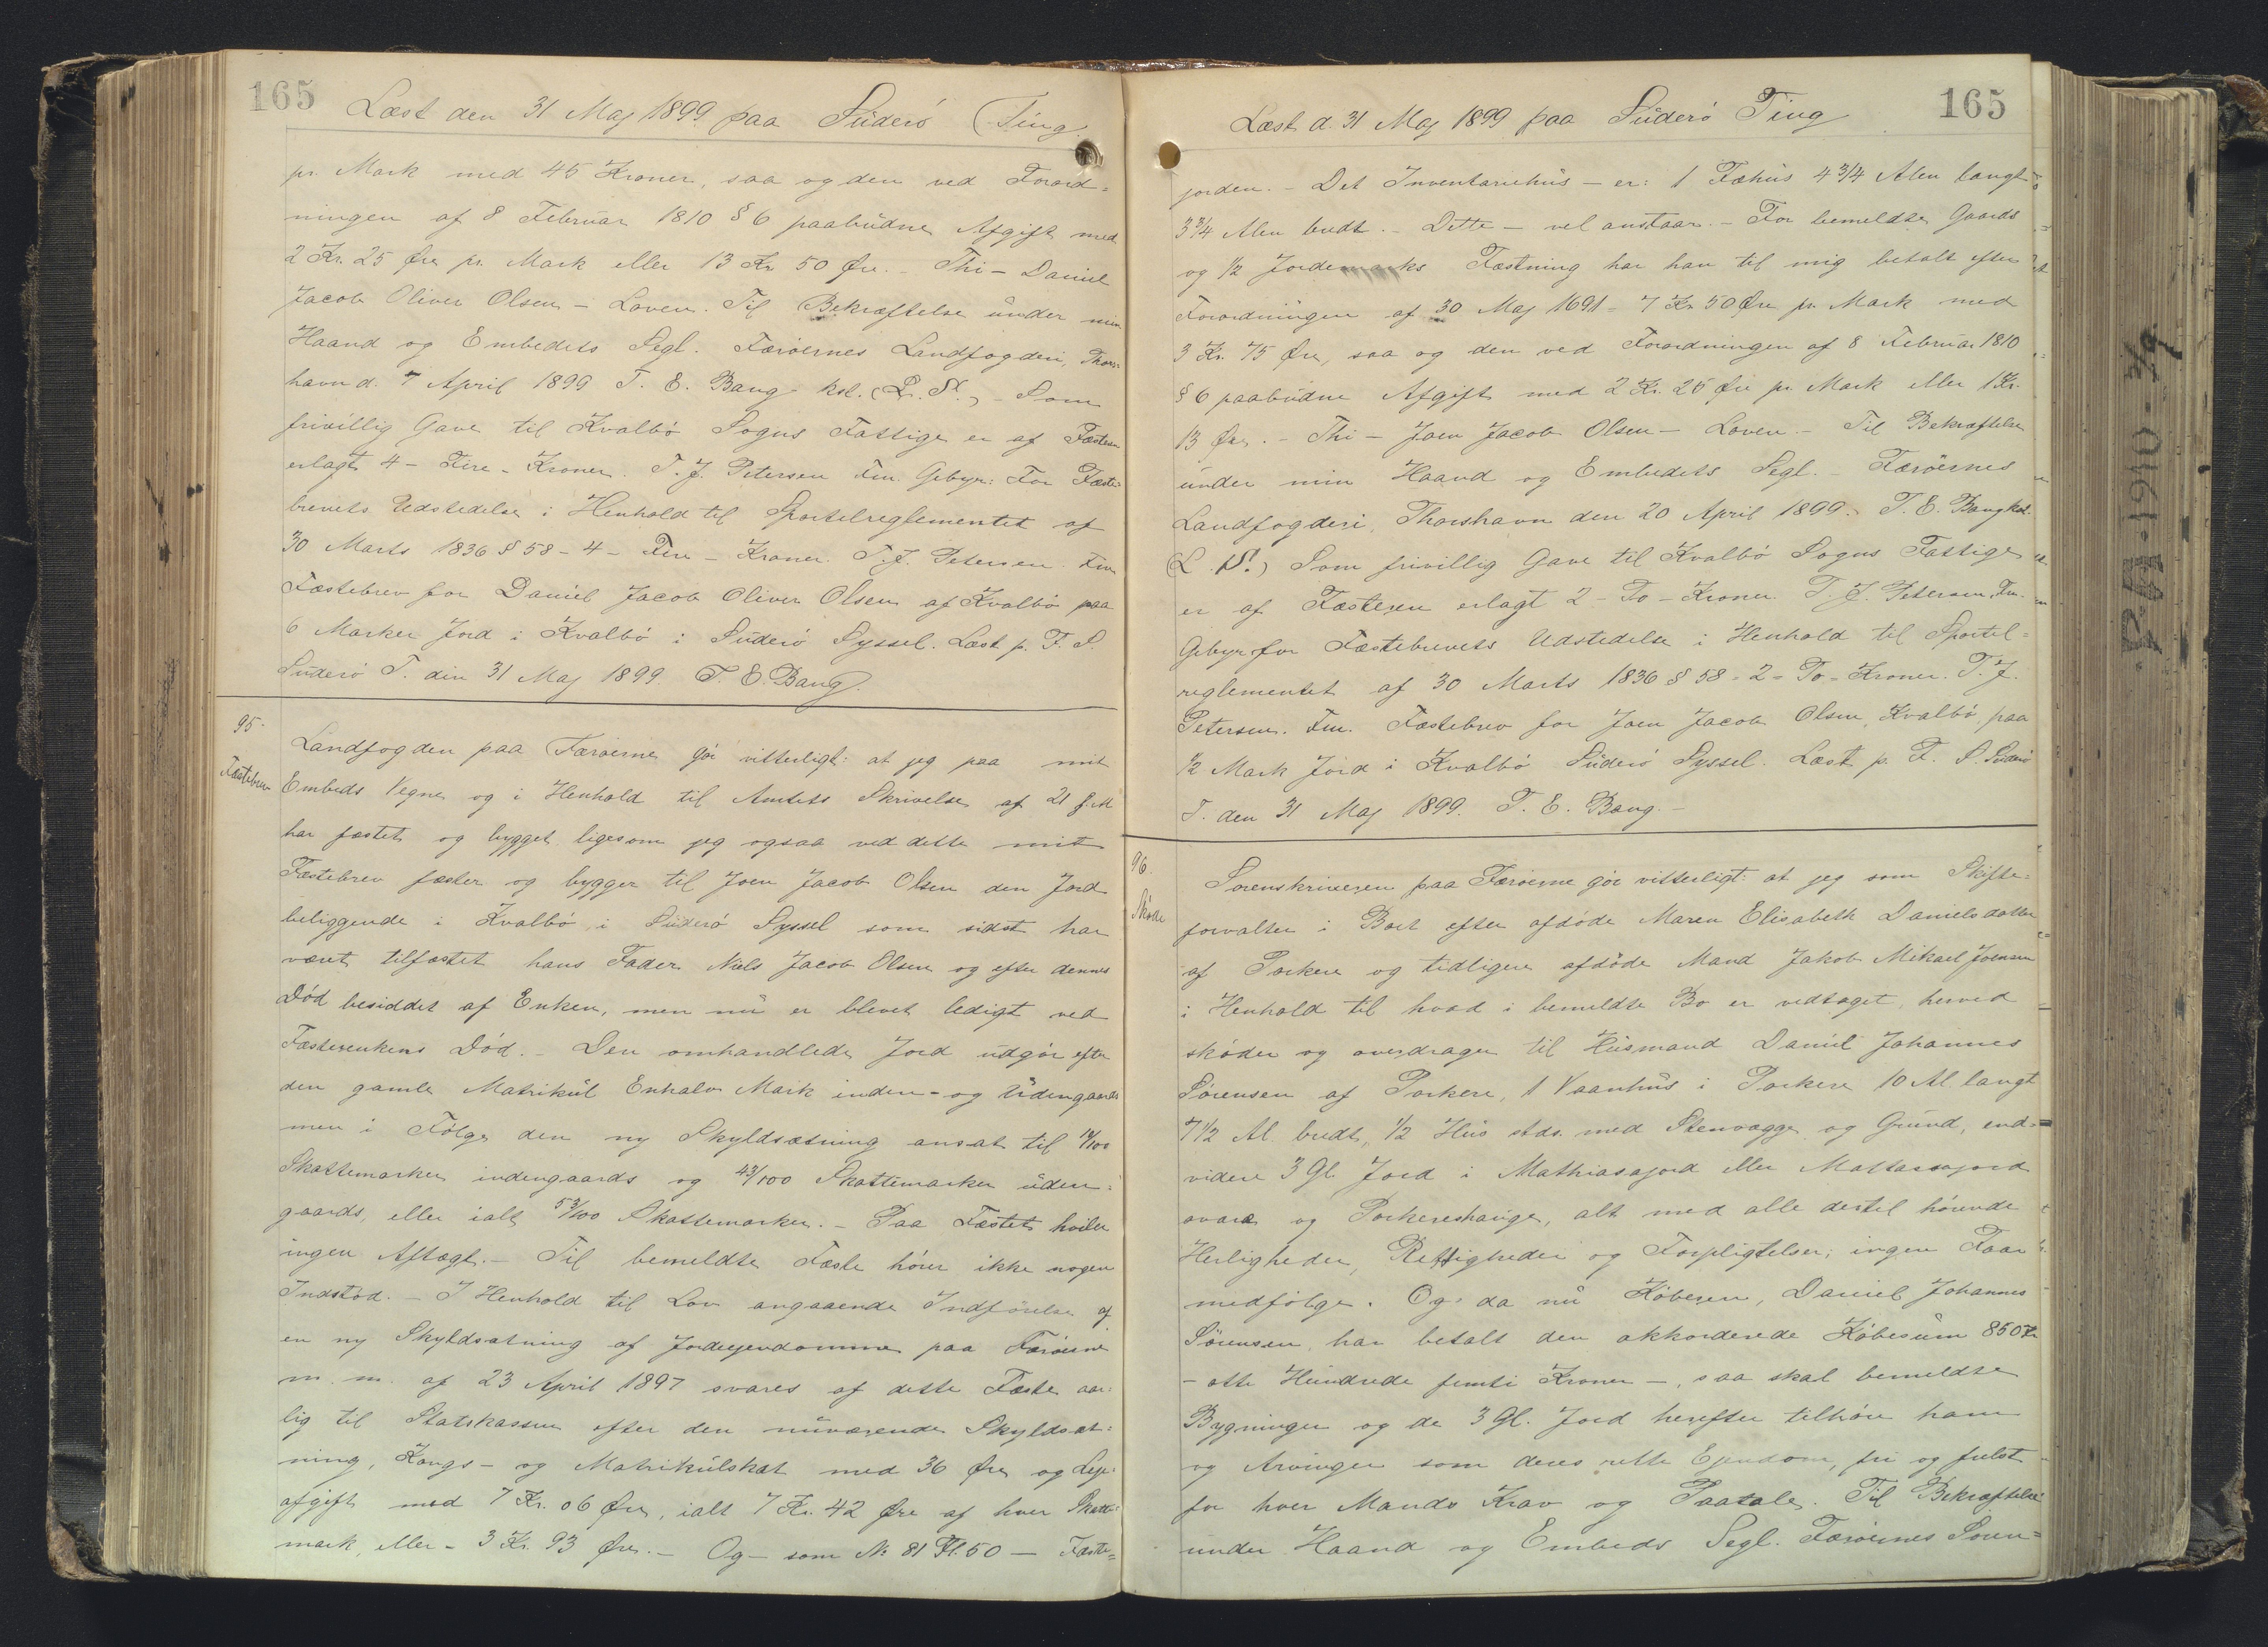 165
Læst den 31 Maj 1899 paa Süderö Ting
pr. Mark med 45 Kroner, saa og den ved Forord=
ningen af 8 Februar 1810 § 6 paabüdne Afgift med
2 Kr. 25 Øre pr. Mark eller 13 Kr. 50 Øre. - Thi - Daniel
Jacob Oliver Olsen - Loven. Til Bekræftelse ünder min
Haand og Embedets Segl. Færöernes Landfogderi, Thors=
havn d. 7 April 1899 T. E. Bang kst. (L. S.) - Som
frivillig Gave til Kvalbö Sogns Fattige er af Fæsteren
erlagt 4 - Fire - Kroner. T. J. Petersen Fm. Gebyr: For Fæste=
brevets Udstedelse i Henhold til Sportelreglementet af
30 Marts 1836 § 58 - 4 - Fire - Kroner. T. J. Petersen. Fm.
Fæstebrev for Daniel Jacob Oliver Olsen af Kvalbö paa
6 Marker Jord i Kvalbö i Süderö Syssel. Læst p. F. S.
Süderö T. din 31 Maj 1899. T. E. Bang.
95.
Fæstebrev
Landfogden paa Færöerne gör vitterligt: at jeg paa mit
Embeds Vegne og i Henhold til Amtets Skrivelse af 21 f. M
har fæstet og bygget ligesom jeg ogsaa ved dette mit
Fæstebrev fæster og bygger til Joen Jacob Olsen den Jord
beliggende i Kvalbö i Süderö Syssel som sidst har
været tilfæstet hans Fader Niels Jacob Olsen og efter dennes
Död besiddet af Enken, men nü er blevet ledigt ved
Fæsterenkens Död. - Den omhandlede Jord üdgör efter
den gamle Matrikül Enhalv Mark inden- og üdengaards
men i Fölge den ny Skyldsætning ansat til 10/100
Skattemarker indengaards og 43/100 Skattemarker üden=
gaards, eller ialt 53/100 Skattemarker. - Paa Fæstet hviler
ingen Aftægt. - Til bemeldte Fæste hörer ikke nogen
Indstöd. - I Henhold til Lov angaaende Indförelse af
en ny Skyldsætning af Jordejendomme paa Færöerne
m. m. af 23 April 1897 svares af dette Fæste aar=
lig til Statskassen efter den nüværende Skyldsæt=
ning, Kongs- og Matrikülskat med 36 Øre og Leje=
afgift med 7 Kr. 06 Øre, ialt 7 Kr. 42 Øre af hver Skatte=
mark, eller - 3 Kr. 93 Øre. - Og - som No 81 Fl. 50 - Fæste=
165
Læst d. 31 Maj 1899 paa Süderö Ting
jorden. - Det Inventariehüs - er: 1 Fæhüs 4 3/4 Alen langt
3 3/4 Alen bredt. - Dette - vel anstaar. - For bemeldte Gaards
og 1/2 Jordemarks Fæstning har han til mig betalt efter
Forordningen af 30 Maj 1691 - 7 Kr. 50 Øre pr. Mark med
3 Kr. 75 Øre, saa og den ved Forordningen af 8 Februar 1810
§ 6 paabüdne Afgift med 2 Kr. 25 Øre pr. Mark eller 1 Kr.
13 Øre. - Thi - Joen Jacob Olsen - Loven. - Til Bekræftelse
ünder min Haand og Embedets Segl. - Færöernes
Landfogderi, Thorshavn den 20 April 1899. T. E. Bang kst.
(L. S.) Som frivillig Gave til Kvalbö Sogns Fattige
er af Fæsteren erlagt 2 - To - Kroner T. J. Petersen, Fm.
Gebyr for Fæstebrevets Udstedelse i Henhold til Sportel=
reglementet af 30 Marts 1836 § 58 - 2 - To - Kroner. T. J.
Petersen. Fm. Fæstebrev for Joen Jacob Olsen, Kvalbö, paa
1/2 Mark Jord i Kvalbö Süderö Syssel. Læst p. F. S. Süderö
T. den 31 Maj 1899. T. E. Bang. -
96.
Sköde
Sorenskriveren paa Færöerne gör vitterligt: at jeg som Skifte=
forvalter i Boet efter afdöde Maren Elisabeth Danielsdatter
af Porkere og tidligere afdöde Mand Jakob Mikael Joensen
i Henhold til hvad i bemeldte Bo er vedtaget, herved
sköder og overdrager til Hüsmand Daniel Johannes
Sörensen af Porkere, 1 Vaanhüs i Porkere 10 Al. langt
7 1/2 Al. bredt, 1/2 Hüs stds. med Stenvægge og Gründ, end=
videre 3 Gl. Jord i Mathiasajord eller Mattarsajord
ovara og Porkereshauge, alt med alle dertil hörende
Herligheder, Rettigheder og Forpligtelser; ingen Faar
medfölge. Og da nü Köberen, Daniel Johannes
Sörensen, har betalt den akkorderede Köbesüm 850 Kr
- otte Hündrede femti Kroner -, saa skal bemeldte
Bygninger og de 3 Gl. Jord herefter tilhöre ham
og Arvinger som deres rette Ejendom, fri og frelst
for hver Mands Krav og Paatale. Til Bekræftelse
ünder Haand og Embeds Segl. Færöernes Soren=